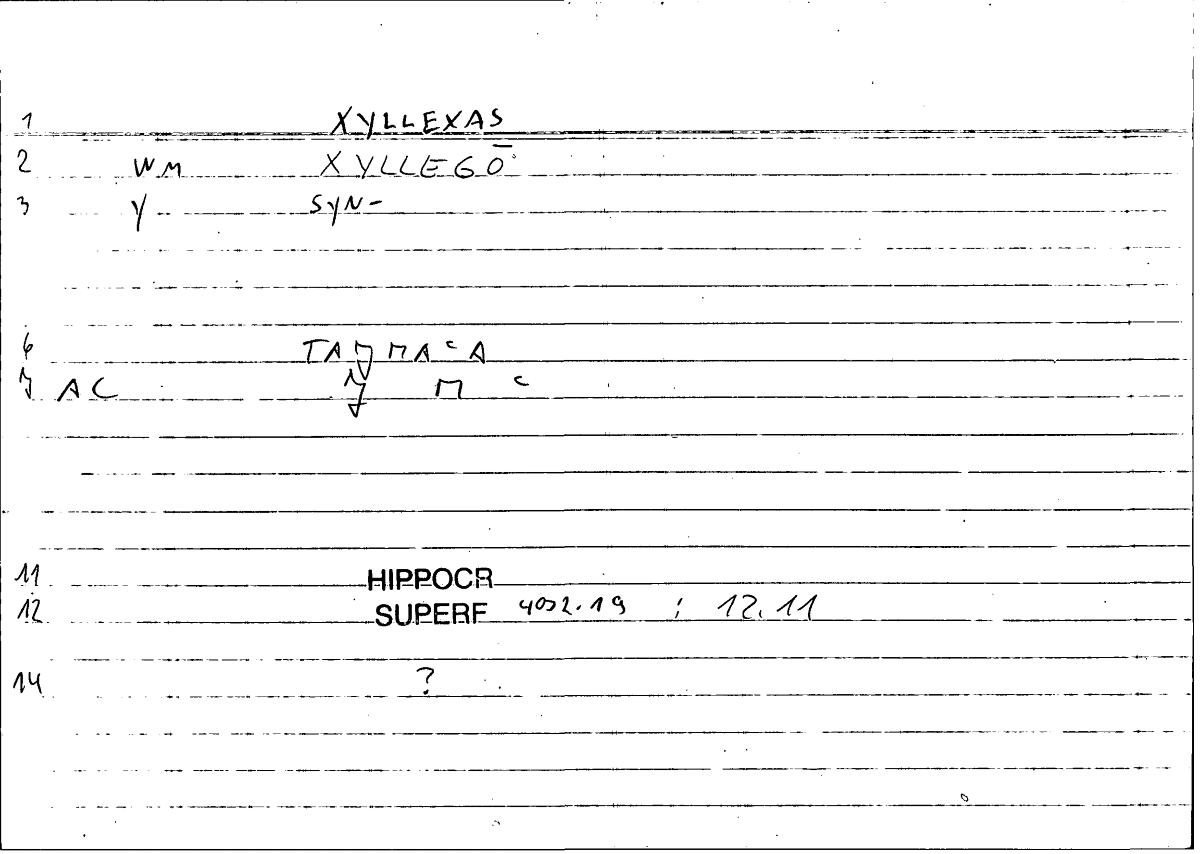 1 XYLLEXAS
2 WM XYLLEGŌ
3 Y SYN-
6
7 AC
11 HIPPOCR
12 SUPERF 4092.19 ; 12.11
14 ?